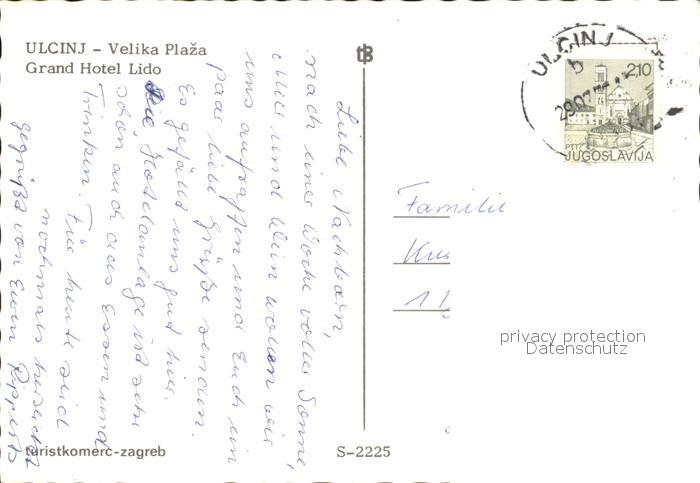 ULCINJ – Velika Plaža
Grand Hotel Lido
Liebe Nachbarn,
nach einer Woche voller Sonne,
Meer und Wein wollen wir
uns aufraffen und Euch ein
paar liebe Grüße senden.
Es gefällt uns gut hier.
Die Hotelanlage ist sehr
schön auch das Essen und
Trinken. Für heute seid
nochmals herzlichst
gegrüßt von Euren
turistkomerc-zagreb
S-2225
ULCINJ
2,10
PTT
JUGOSLAVIJA
Familie
privacy protection
Datenschutz